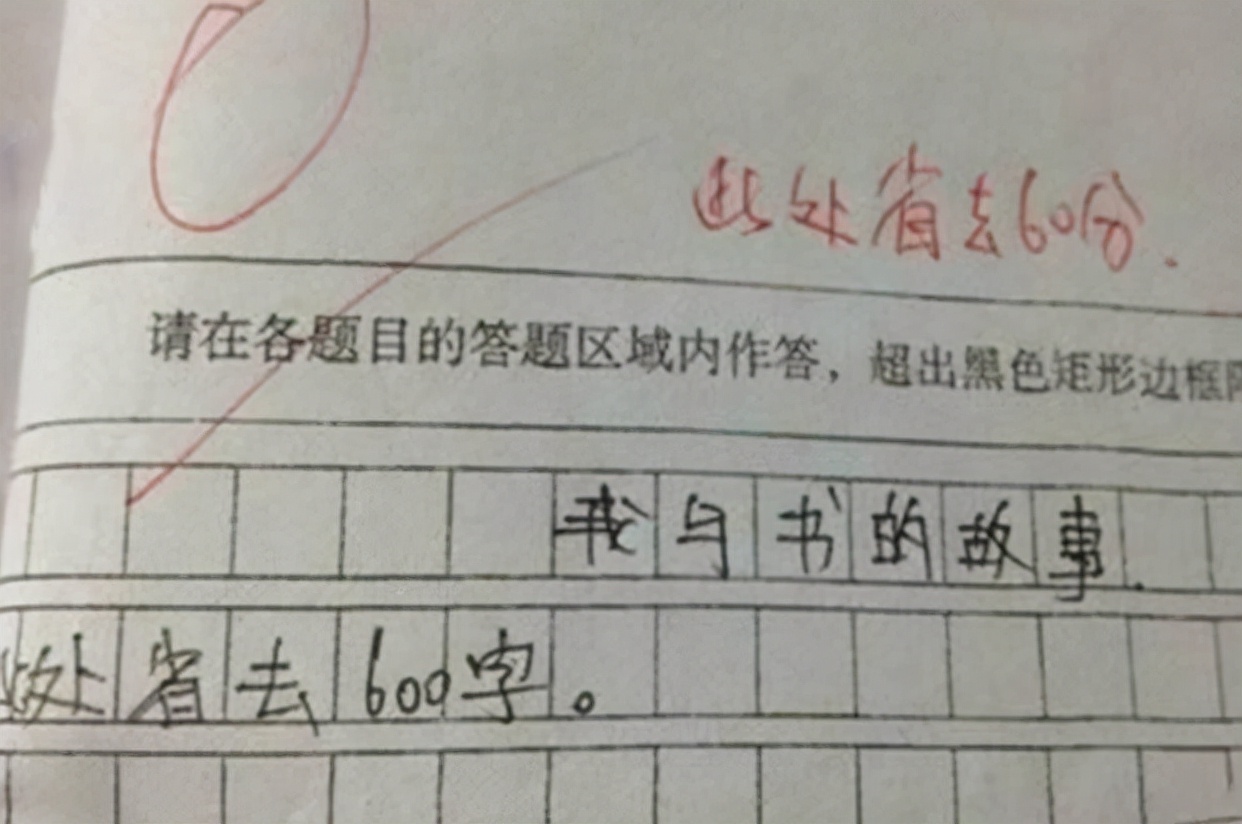 此处省去60分.
请在各题目的答题区域内作答，超出黑色矩形边框
我与书的故事.
此处省去600字。